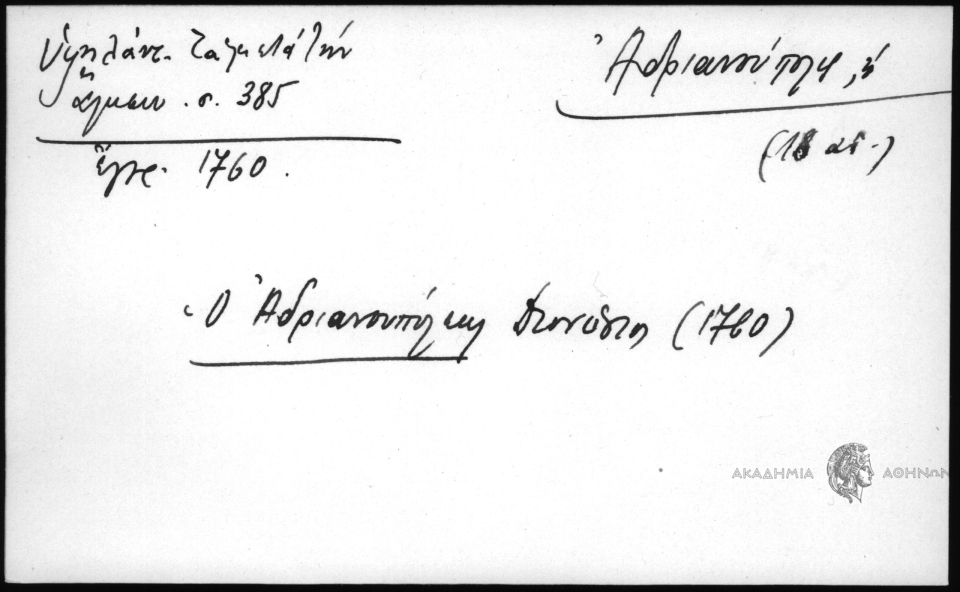 Ὑψηλάντ. Τὰ μετὰ τὴν
ἅλωσιν . σ. 385
ἔγγρ. 1760.
Ἀδριανούπολις, ἡ
(18 αἰ.)
ὁ Ἀδριανουπόλεως Διονύσιος (1760)
ΑΚΑΔΗΜΙΑ ΑΘΗΝΩΝ